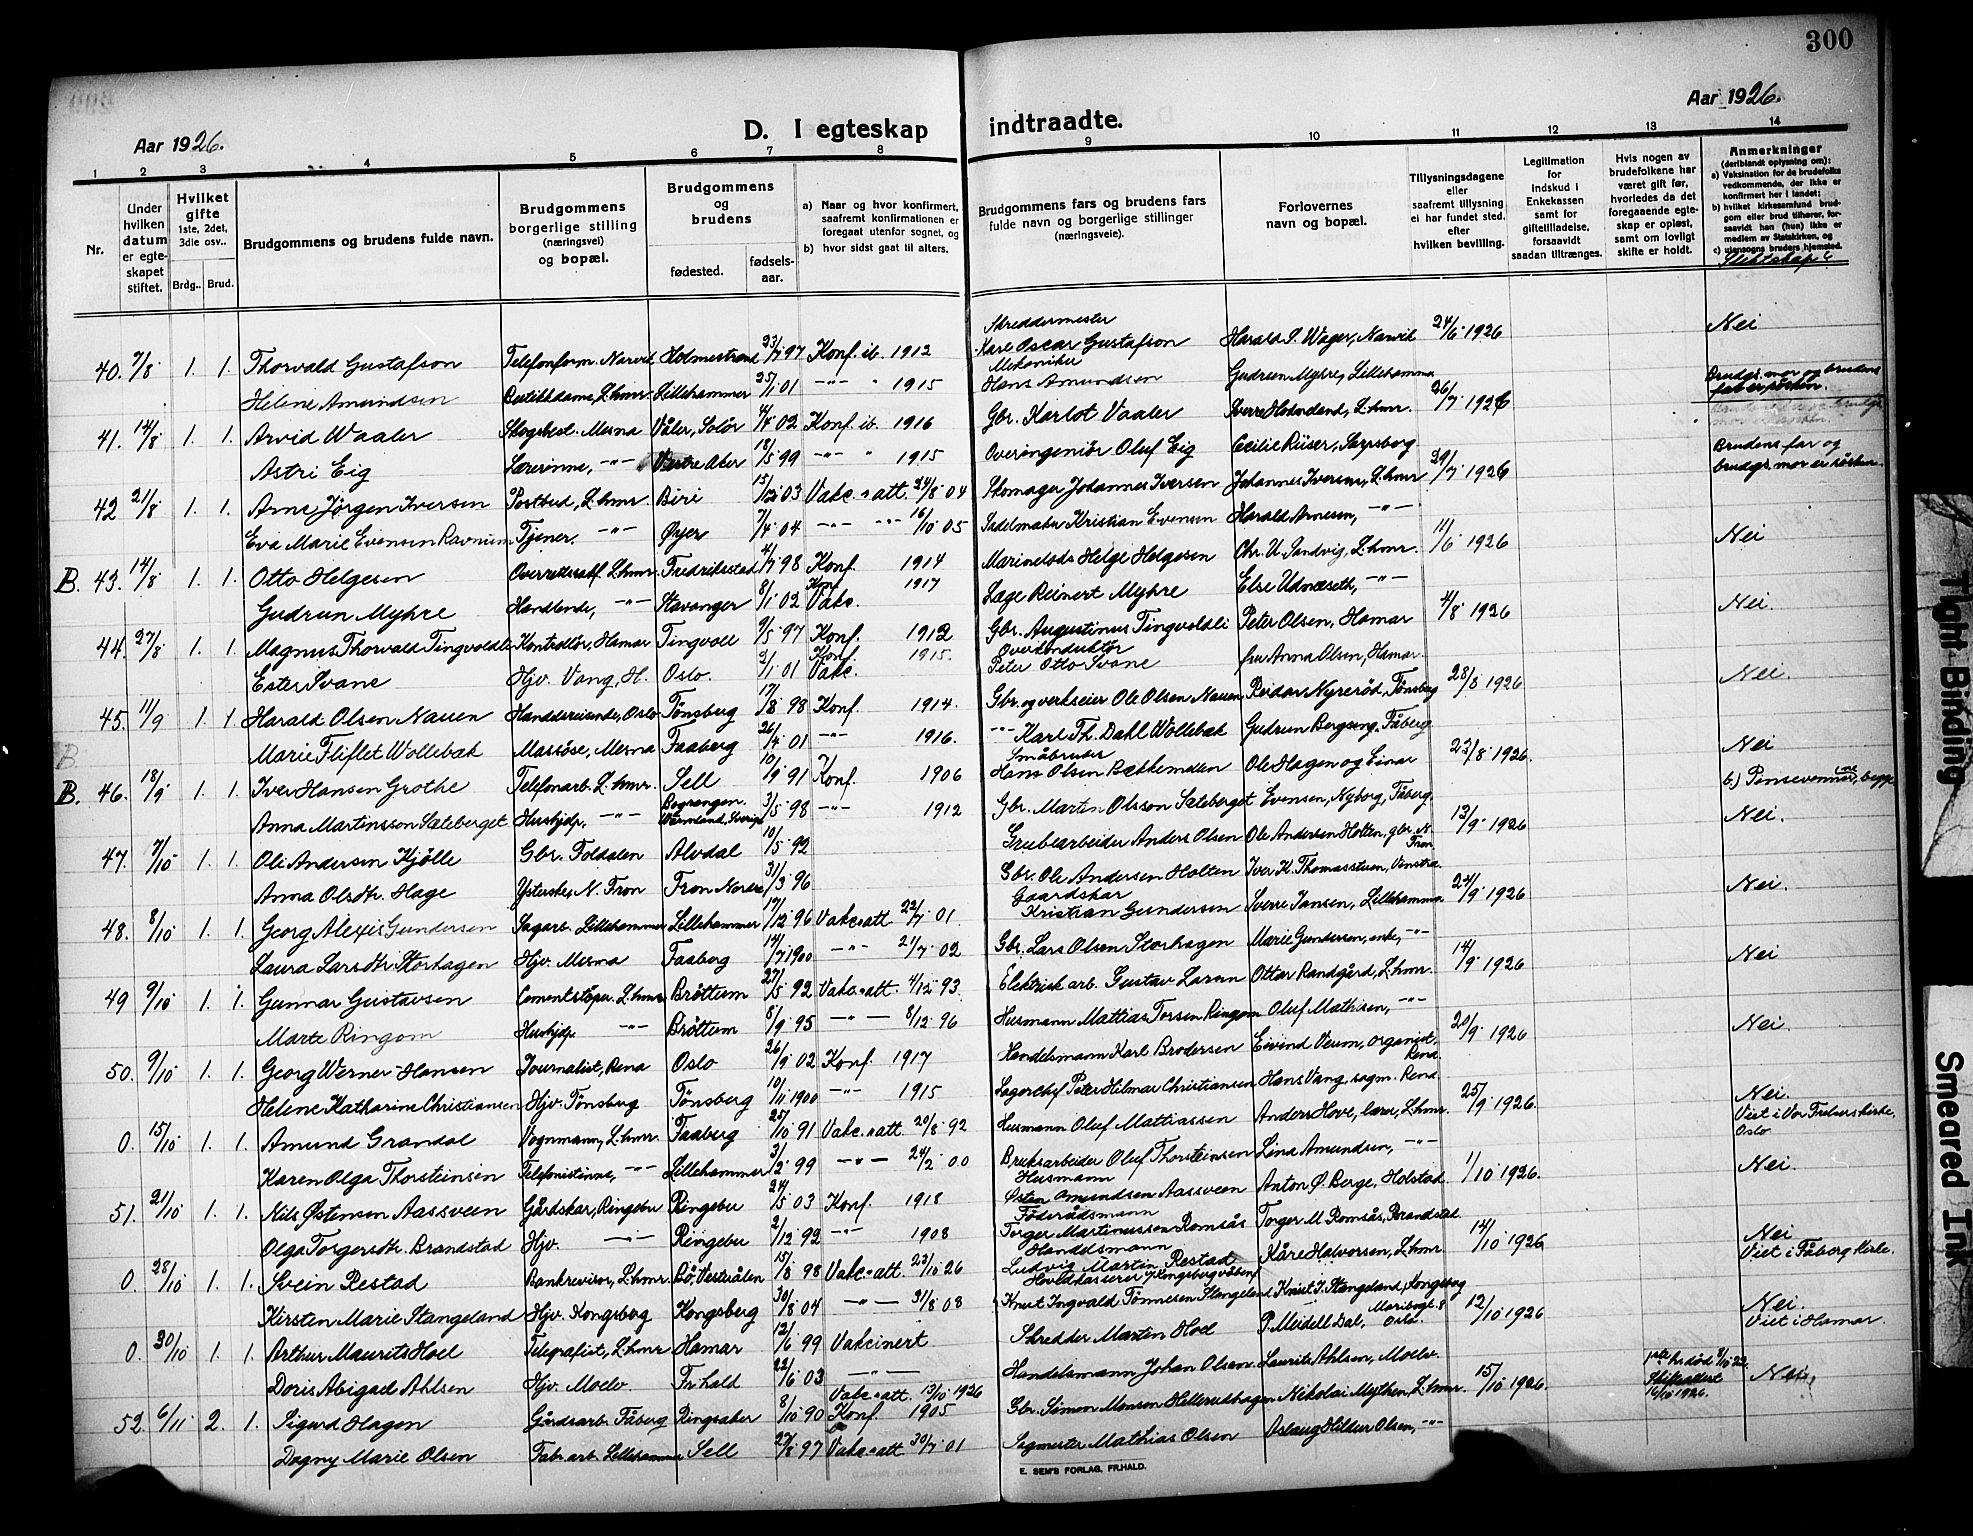 300
Aar 1926.
Aar 1926.
D. I egteskap indtraadte.
1 2 3 4 5 6 7 8 9 10 11 12 13 14
Nr.
Under hvilken datum er egte-skapet stiftet.
Hvilket gifte 1ste, 2det, 3die osv..
Brdg.. Brud.
Brudgommens og brudens fulde navn.
Brudgommens borgerlige stilling (næringsvei) og bopæl.
Brudgommens og brudens
fødested.
fødsels-aar.
a) Naar og hvor konfirmert, saafremt konfirmationen er foregaat utenfor sognet, og
b) hvor sidst gaat til alters.
Brudgommens fars og brudens fars fulde navn og borgerlige stillinger (næringsveie).
Forlovernes navn og bopæl.
Tillysningsdagene eller saafremt tillysning ei har fundet sted. efter hvilken bevilling.
Legitimation for Indskud i Enkekassen samt for giftetilladelse, forsaavidt saadan tiltrænges.
Hvis nogen av brudefolkene har været gift før, hvorledes da det foregaaende egte-skap er opløst, samt om lovligt skifte er holdt.
Anmerkninger (deriblandt oplysning om):
a) Vaksination for de brudefolks vedkommende, der ikke er konfirmert her i landet;
b) hvilket kirkesamfund brudgom eller brud tilhører, forsaavidt han (hun) ikke er medlem av Statskirken, og
c) utensogns bruders hjemsted.
Slektskap?
40. 7/8 1. 1. Thorvald Gustafson Telefonform. Narvik Holmestrand 23/7 97 Konf. ib. 1912 Skreddermester Karl Oscar Gustafson Harald S. Wager, Narvik 24/6 1926 Nei
Helene Amundsen Butikkdame, L.hmr. Lillehammer 25/1 01 -"- " 1915 Mekaniker Hans Amundsen Gudrun Myhre, Lillehammer
41. 14/8 1. 1. Arvid Waaler Skogbest. Mesna Våler, Solør 4/4 02 Konf. ib. 1916 Gbr. Karlot Vaaler L.hmr. 26/7 1926 Brudgs. mor og brudens far er søsken.
Astri Eig Lærerinne, -"- Vestre Aker 18/5 99 -"- " 1915 Overingeniør Oluf Eig Cecilie Riiser, Sarpsborg
42 21/8 1. 1. Arne Jørgen Iversen Postbud, L.hmr. Biri 15/12 03 Vakc. att. 24/8 04 Skomager Johannes Iversen Johannes Iversen, L.hmr 29/7 1926 Brudens far og brudgs. mor er søsken.
Eva Marie Evensen Ravnum Tjener. -"- Øyer 7/4 04 -"- -"- 16/10 05 Sadelmaker Kristian Evensen Harald Arnesen, -"-
B. 43. 14/8 1. 1. Otto Helgesen Overrettssakf. L.hmr. Fredriksstad 4/7 98 Konf. 1914 Marinelods Helge Helgesen Chr. U. Sandvig, L.hmr. 11/6 1926 Nei
Gudrun Myhre Handlende, -"- Stavanger 8/1 02 Konf. Vakc. 1917 Lage Reinert Myhre Else Udnæseth, -"-
44. 27/8 1. 1. Magnus Thorvald Tingvoldli Kontrollør, Hamar Tingvoll 9/5 97 Konf. 1912 Gbr. Augustinus Tingvoldli Peter Olsen, Hamar 4/8 1926 Nei.
Ester Svane Hjv. Vang, H. Oslo. 2/1 01 Konf. Vakc. 1915. Overkonduktør Peter Otto Svane fru Anna Olsen, Hamar.
45. 11/9 1. 1. Harald Olsen Nauen Handdreiende, Oslo Tönsberg 17/8 98 Konf. 1914. Gbr. og verkseier Ole Olsen Nauen Reidar Nyrerød, Tönsberg 28/8 1926 Nei.
B Marie Fliflet Wollebæk Massöse, Mesna Faaberg 26/4 01 -"- 1916. -"- Karl Th. Dahl Wollebæk Gudrun Bergseng, Fåberg
B. 46. 18/9 1. 1. Iver Hansen Grothe Telefonarb. L.hmr. Sell 10/9 91 Konf. 1906 Småbruker Hans Olsen Ole Hagen og Einar 23/8 1926. Nei
Anna Martinsson Sæleberget Hushjelp, -"- Bograngen. Wärmland, Sverige 3/5 98 -"- 1912 Gbr. Martin Olsson Sæleberget Evensen, Nyborg, Fåberg. b.) Pinsevenner, begge
47. 7/10 1. 1. Ole Andersen Kjölle Gbr. Foldalen Alvdal 10/5 92 Grubearbeider Anders Olsen Ole Andersen Holten, gbr. N. Fron 13/9 1926 Nei.
Anna Olsdtr. Hage N. Fron Fron Nordre 31/3 96 Gbr. Ole Andersen Holten Iver K. Thomasstuen, Vinstra.
48. 8/10 1. 1. Georg Alexis Gundersen Sagarb. Lillehammer Lillehammer 17/12 96 Vakc. att 22/7 01. Gaardskar Kristian Gundersen Sverre Jansen, Lillehammer 24/9 1926 Nei.
Laura Larsdtr. Storhagen Hjv. Mesna Faaberg 14/7 1900 -"- 21/7 02 Gbr. Lars Olsen Storhagen Marie Gundersen, enke, -"-
49 9/10 1. 1. Gunnar Gustavsen Cementstöper L.hmr Bröttum 27/5 92 Vakc. att. 4/12 93. Elektrisk arb. Gustav Larsen Ottar Randgård, L.hmr. 14/9 1926 Nei.
Marte Ringom Hushjelp -"- Bröttum 8/9 95 -"- 8/12 96 Husmann Mattias Torsen Ringom Oluf Mathisen, -"-
50. 9/10 1. 1. Georg Werner Hansen Journalist, Rena Oslo 26/9 02 Konf. 1917 Handelsmann Karl Brodersen Eivind Veum, organist, Rena. 20/9 1926 Nei.
Helene Katharine Christiansen Hjv. Tönsberg Tönsberg 10/11 1900 -"- 1915 Lagerchef Peter Hilmar Christiansen Hans Vang, sagm. Rena.
0. 15/10 1. 1. Amund Grandal Vognmann, L.hmr. Faaberg 25/10 91 Vakc. att 20/8 92 Husmann Oluf Mattiassen Anders Hove, lærer, L.hmr. 25/9 1926. Nei. Viet i Vor Frelsers kirke, Oslo
Karen Olga Thorsteinsen Telefonistinne, -"- Lillehammer 3/12 99 -"- 24/2 00 Bruksarbeider Oluf Thorsteinsen Lina Amundsen, -"-
51. 21/10 1. 1. Nils Østensen Aassveen Gårdskar, Ringebu Ringebu 24/5 03 Konf. 1918 Husmann Østen Amundsen Aassveen Anton Ø. Berge, Holstad 1/10 1926. Nei.
Olga Torgersdtr. Brandstad Hjv. -"- Ringebu 2/12 92 -"- 1908 Föderådsmann Torger Martinussen Romsås Torger M. Romsås, Brandstad.
0. 28/10 1. 1. Svein Restad Bankrevisor, L.hmr. Bö, Vesterålen 15/8 98 Vakc. att 23/10 26 Handelsmann Ludvig Martin Restad Kåre Halvorsen, L.hmr. 14/10 1926 Nei Viet i Fåberg kirke.
Kirsten Marie Stangeland Hjv. Kongsberg Kongsberg 30/8 04 -"- 31/8 08 Hovedkasserer v/ Kongsberg våbenf. Knut Ingvald Tönnesen Stangeland Knut T. Stangeland, Kongsberg
0. 30/10 1. 1. Arthur Maurits Hoel Telegrafist, L.hmr Hamar 12/6 99 Vakcinert Skredder Martin Hoel P. Meidell Dal, Maribogt. 8 Oslo. 12/10 1926 Nei. Viet i Hamar.
Doris Abigael Ahlsen Hjv. Moelv. Fr.hald 22/6 03 -"- Handelsmann Johan Olsen Laurits Ahlsen, Moelv.
52. 6/11 2. 1. Sigurd Hagen Gårdsarb. Fåberg Ringsaker 8/10 90 Vakc. att 13/10 1926 Konf. 1905 Gbr. Simen Monsen Hellerudhagen Nikolai Mythen, L.hmr. 15/10 1926. 1ste h. död Skifteattest 16/10 1926. Nei,
Dagny Marie Olsen Fabr. arb. Lillehammer Sell 27/8 97 Vakc. att 30/7 01 Sagmester Mathias Olsen Aslaug Hildur Olsen, -"-
E. SEM'S FORLAG, FR.HALD.
Tight Binding
Smeared Ink